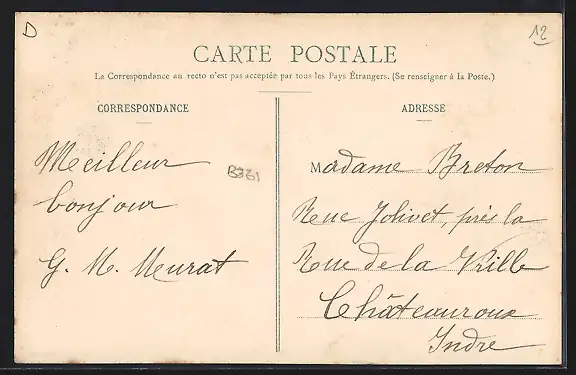 D
12
CARTE POSTALE
La Correspondance au recto n'est pas acceptée par tous les Pays Étrangers. (Se renseigner à la Poste.)
CORRESPONDANCE
Meilleur
bonjour
G. M. Meurat
B361
ADRESSE
Madame Breton
Rue Jolivet, près la
Rue de la Vrille
Châteauroux
Indre